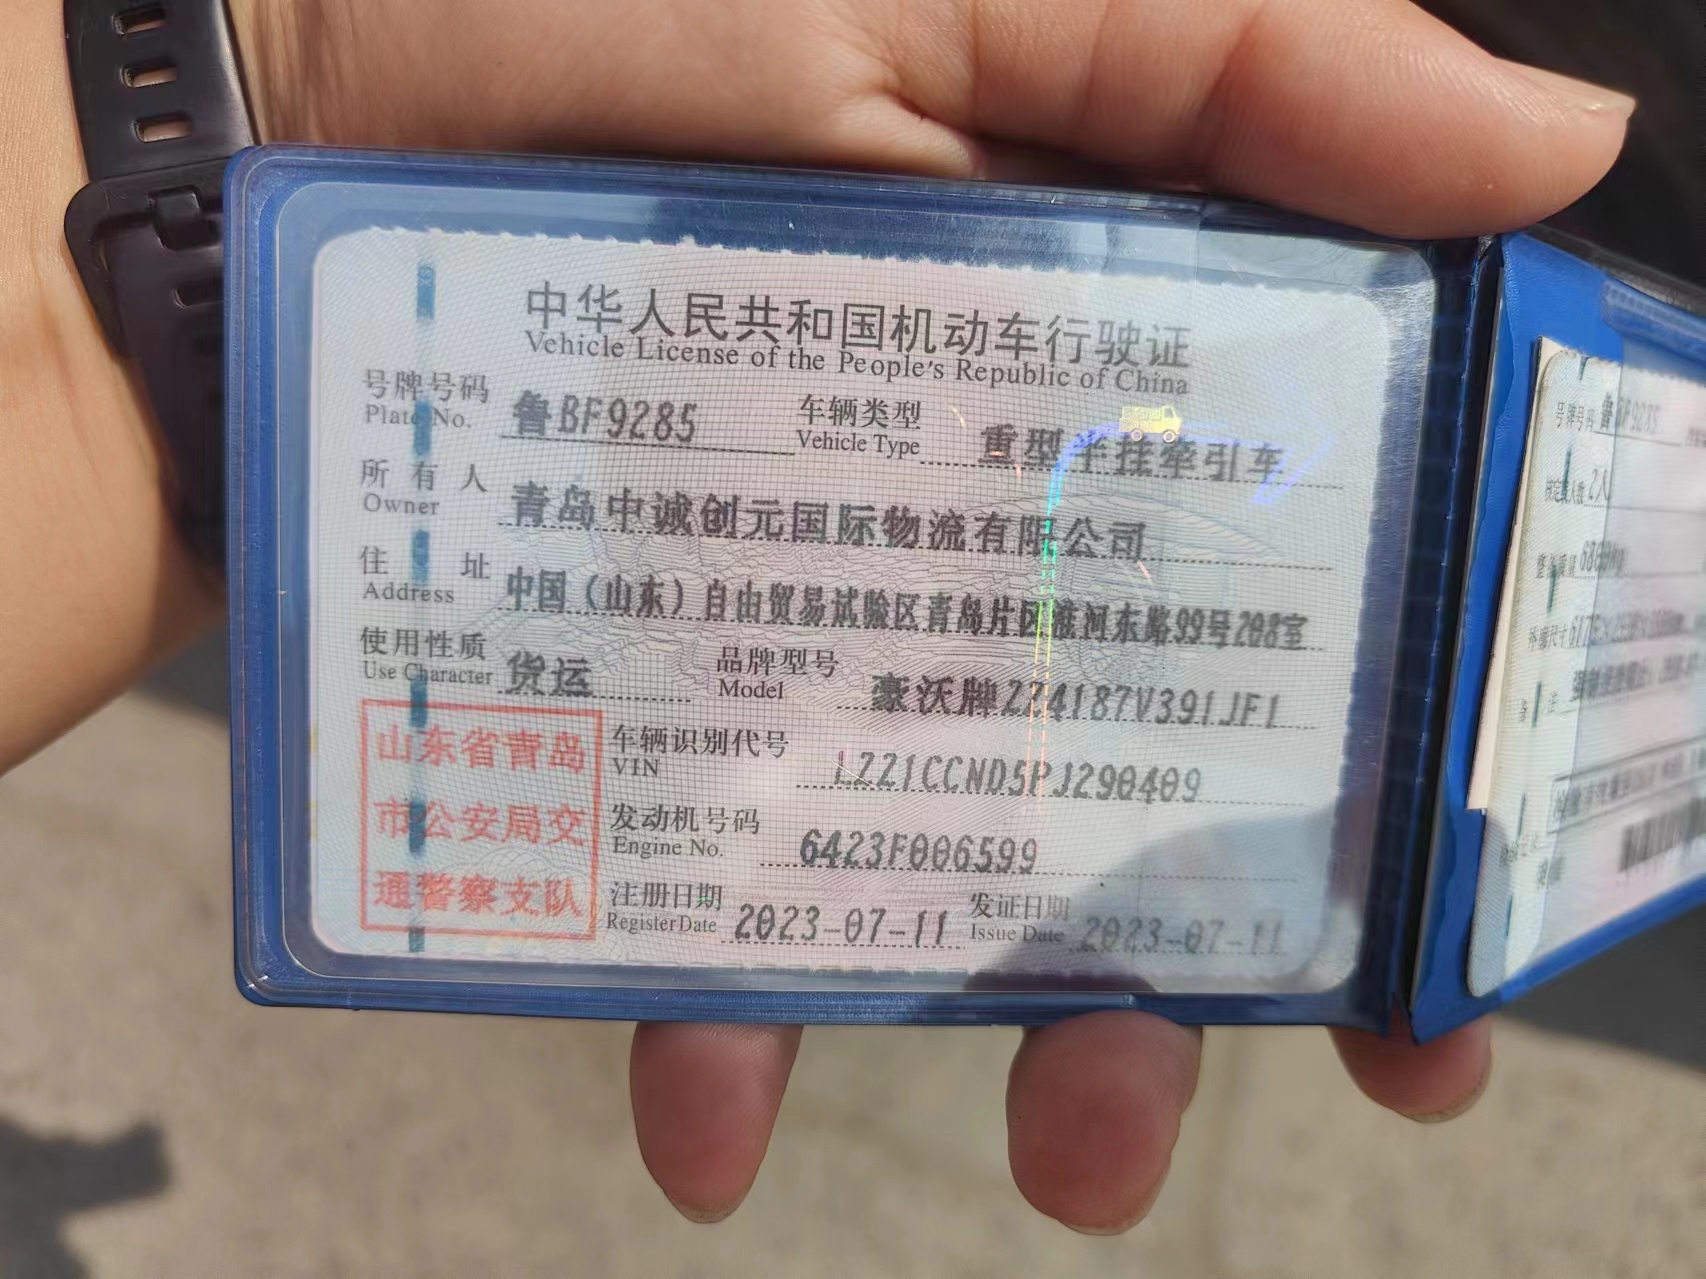 中华人民共和国机动车行驶证
Vehicle License of the People's Republic of China
号牌号码 鲁BF9285 车辆类型 重型半挂牵引车
Plate No. Vehicle Type
所有人 青岛中诚创元国际物流有限公司
Owner
住址 中国（山东）自由贸易试验区青岛片区淮河东路99号208室
Address
使用性质 货运 品牌型号 豪沃牌ZZ4187V391JF1
Use Character Model
山东省青岛
市公安局交
通警察支队
车辆识别代号 LZZ1CCND5PJ290409
VIN
发动机号码 6423F006599
Engine No.
注册日期 2023-07-11 发证日期 2023-07-11
Register Date Issue Date
号牌号码 鲁BF9285
2人